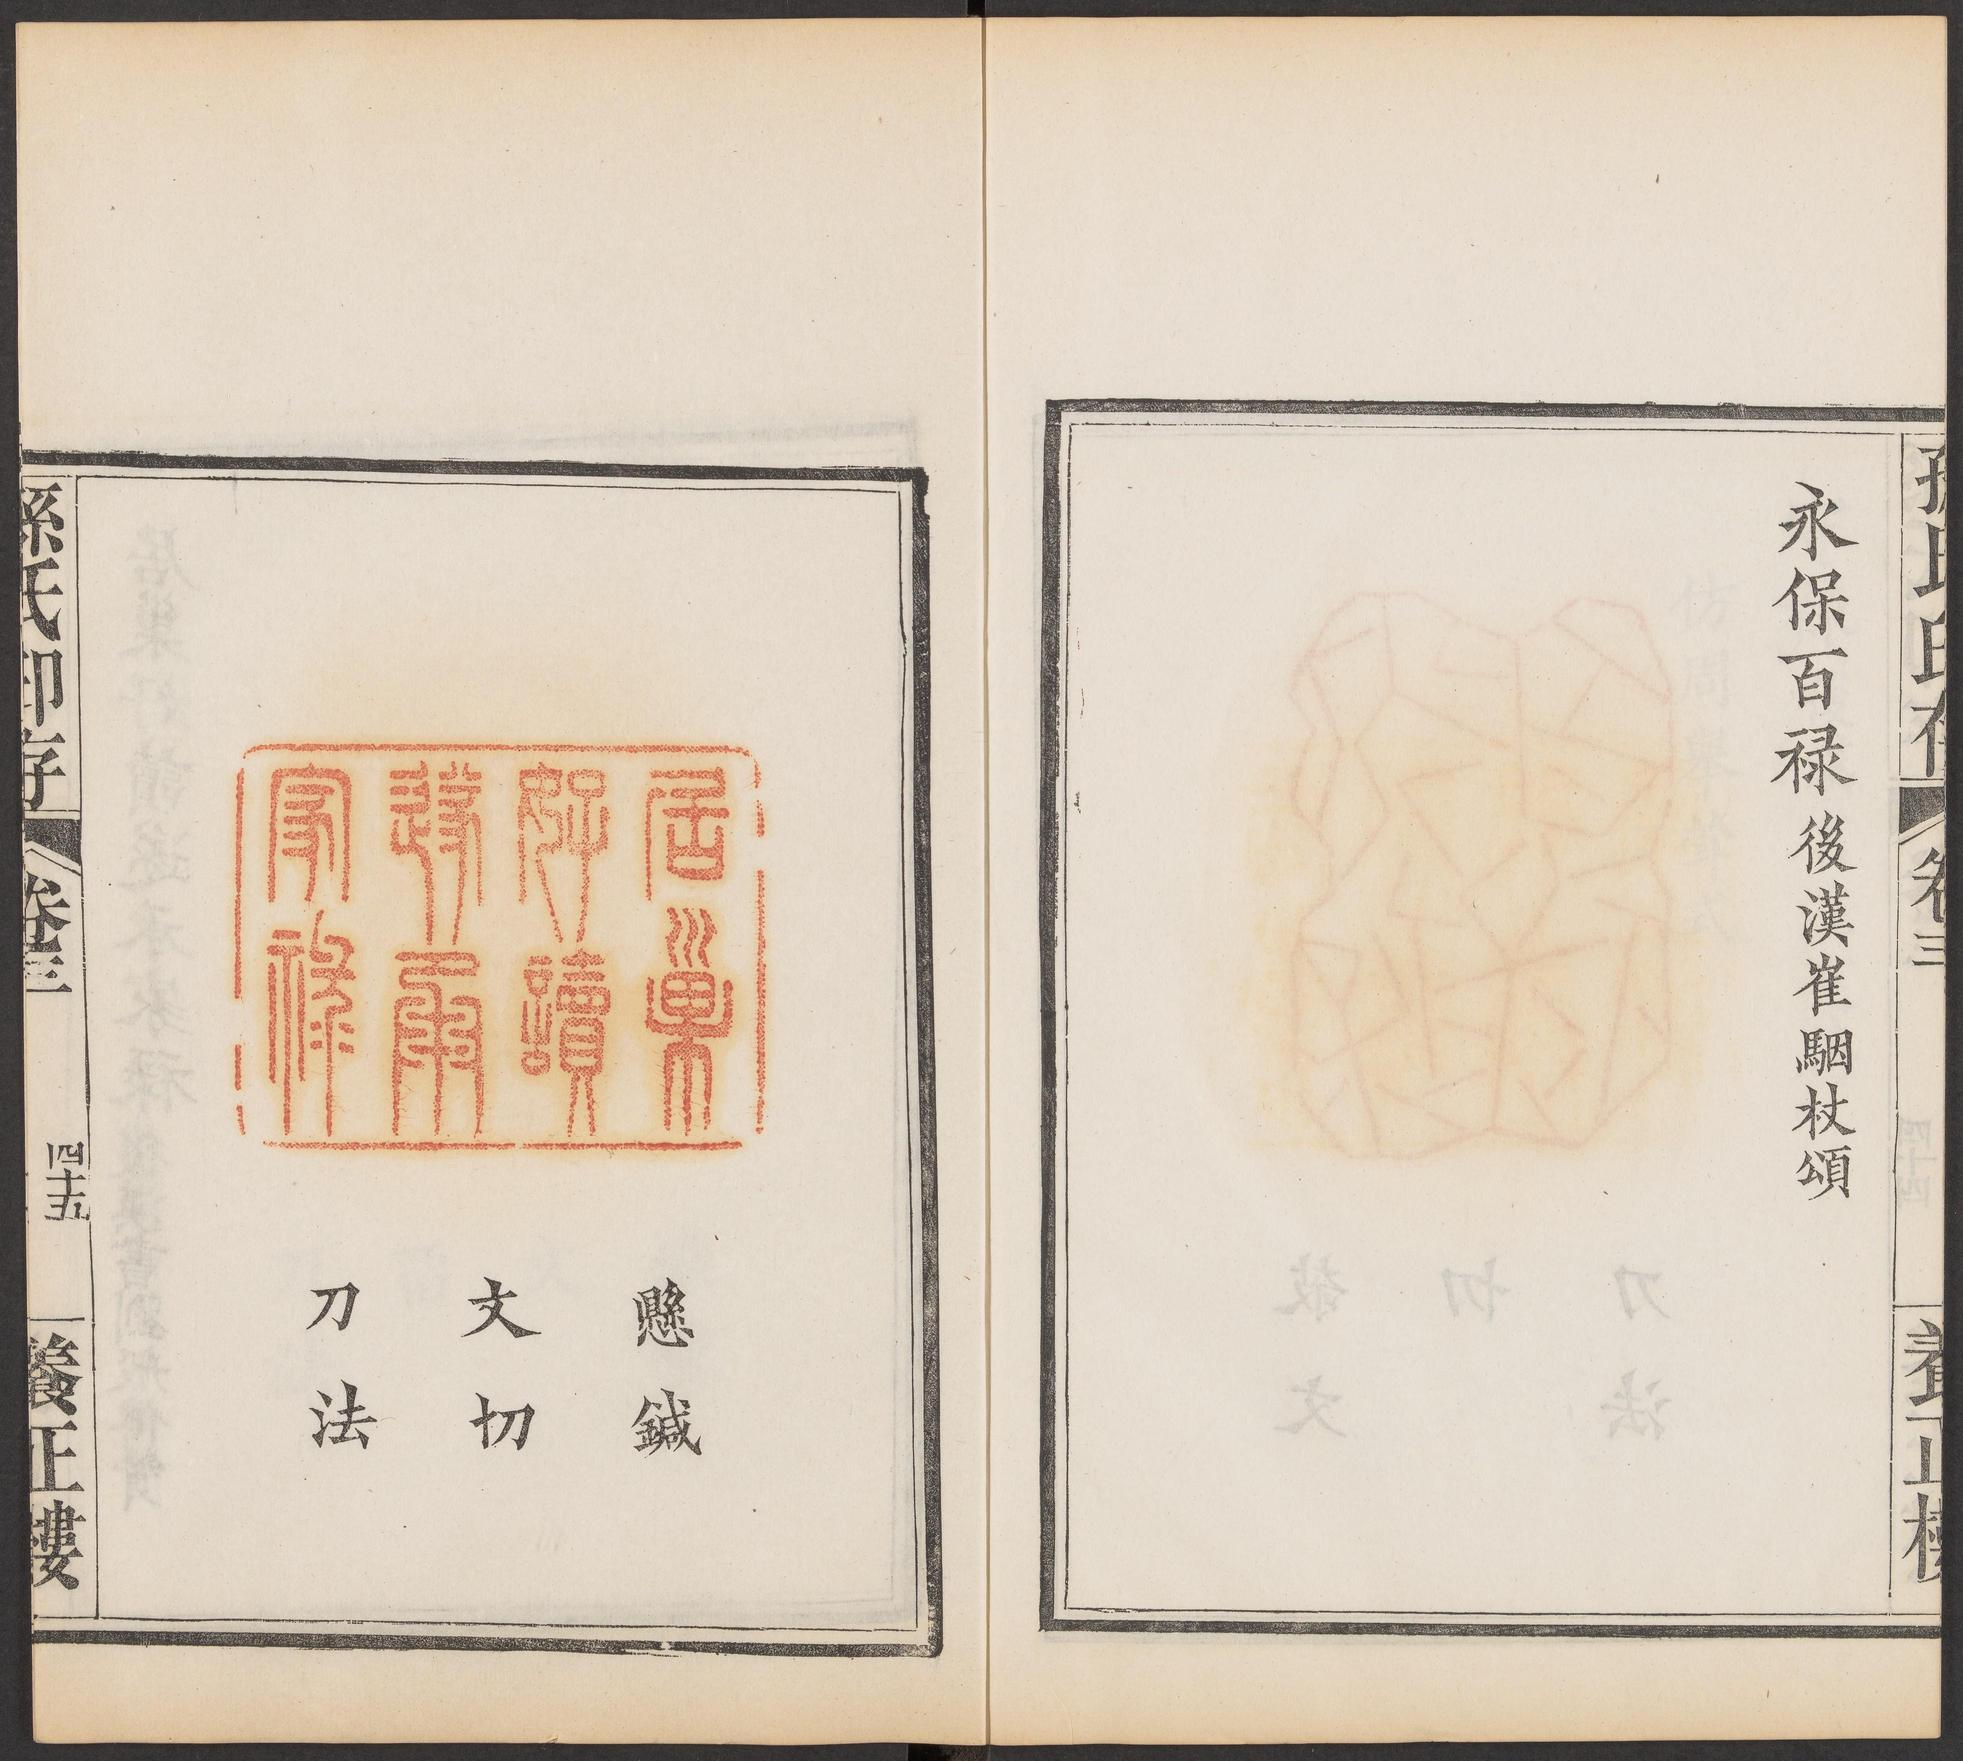 永保百禄後漢崔駰杖頌
孫氏印存
卷三
養正樓
居巢
好讀
遂承
家祿
懸鍼
文切
刀法
孫氏印存
卷三
四十五
養正樓